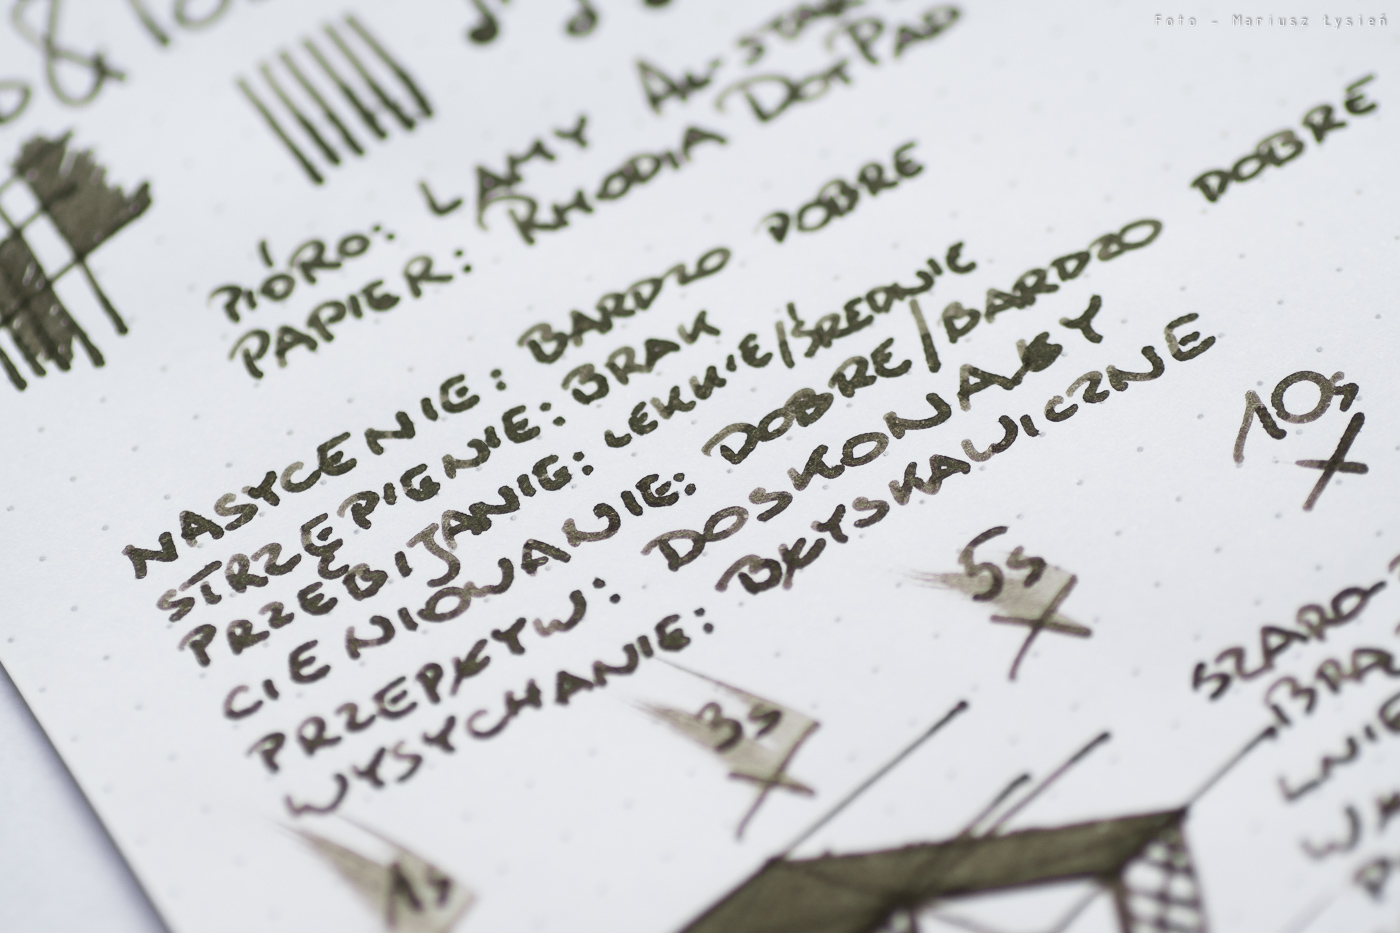 Foto - Mariusz Łysień
&
PIÓRO: LAMY AL-STAR
PAPIER: RHODIA DOTPAD
NASYCENIE: BARDZO DOBRE
STRZĘPIENIE: BRAK
PRZEBIJANIE: LEKKIE/ŚREDNIE
CIENIOWANIE: DOBRE/BARDZO DOBRE
PRZEPŁYW: DOSKONAŁY
WYSYCHANIE: BŁYSKAWICZNE
1s
3s
5s
10s
SZARO-